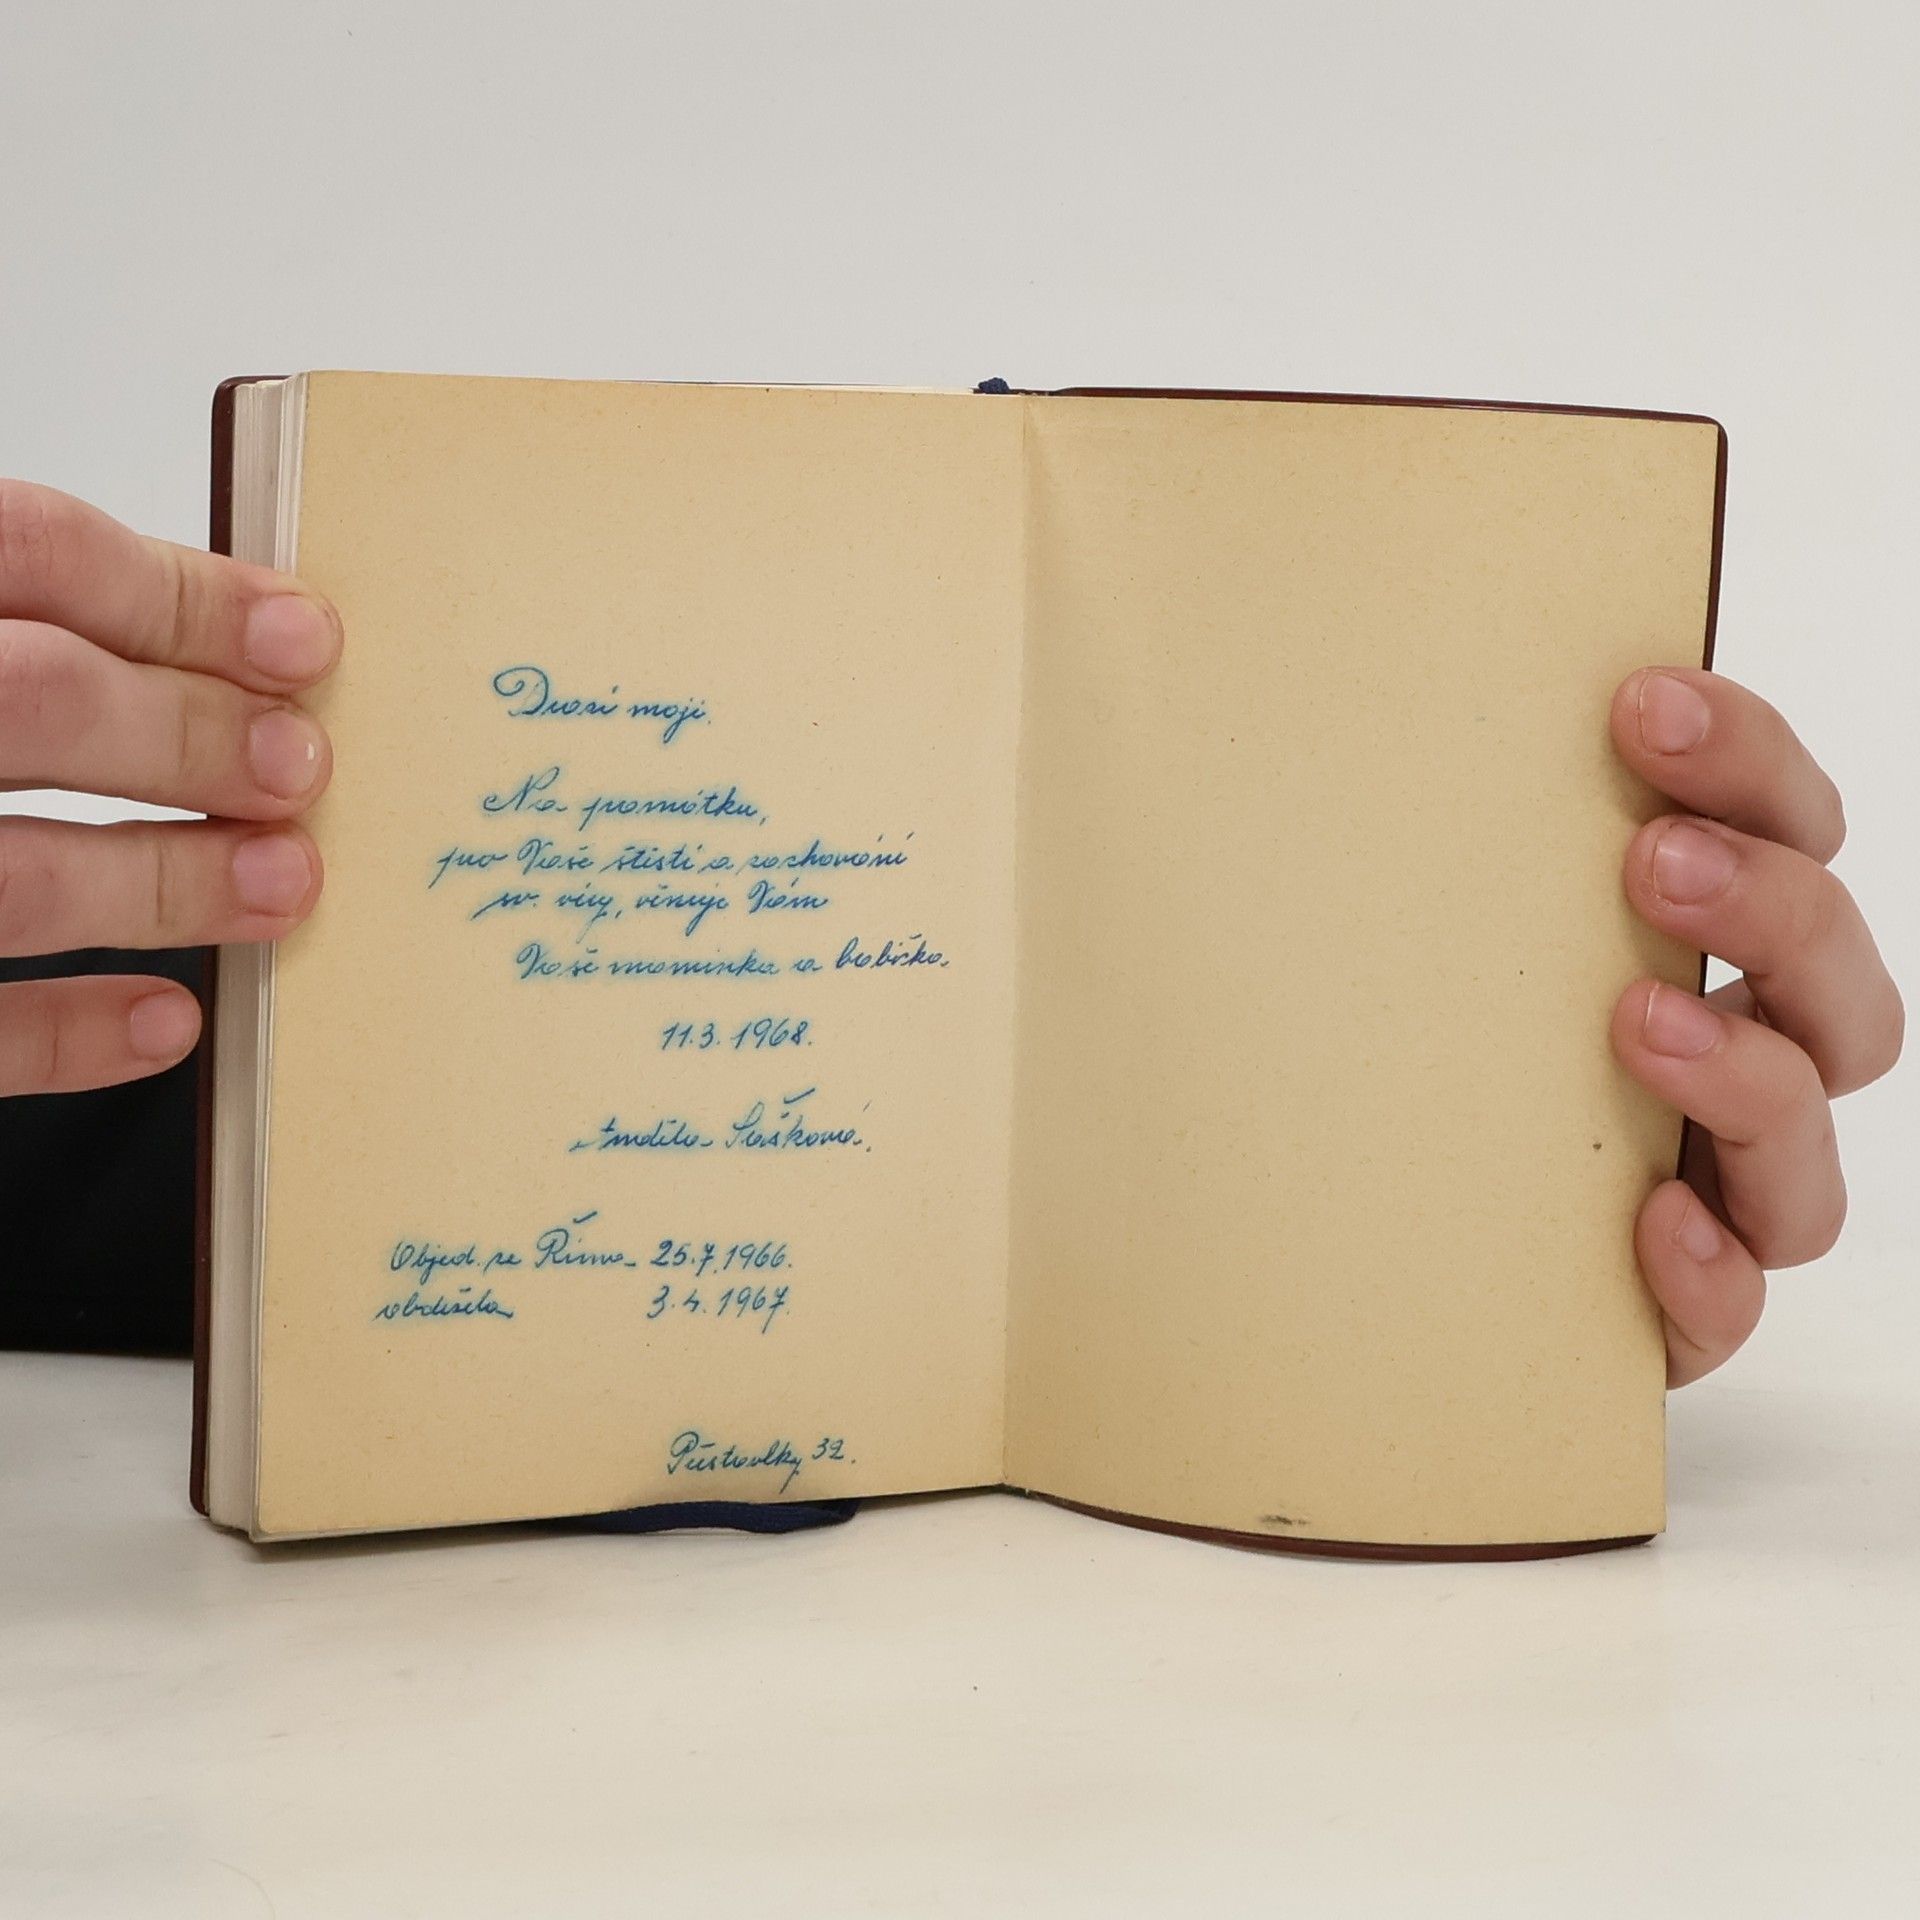 Drazí moji.
Na pomátku,
pro Vaše štísti a zachování
sv. víry, věnuje Vám
Vaše maminka a babička.
11.3. 1968.
Anděla Šašková.
Objed. ze Říma - 25.7.1966.
obdržela 3.4.1967.
Půstovlky 32.